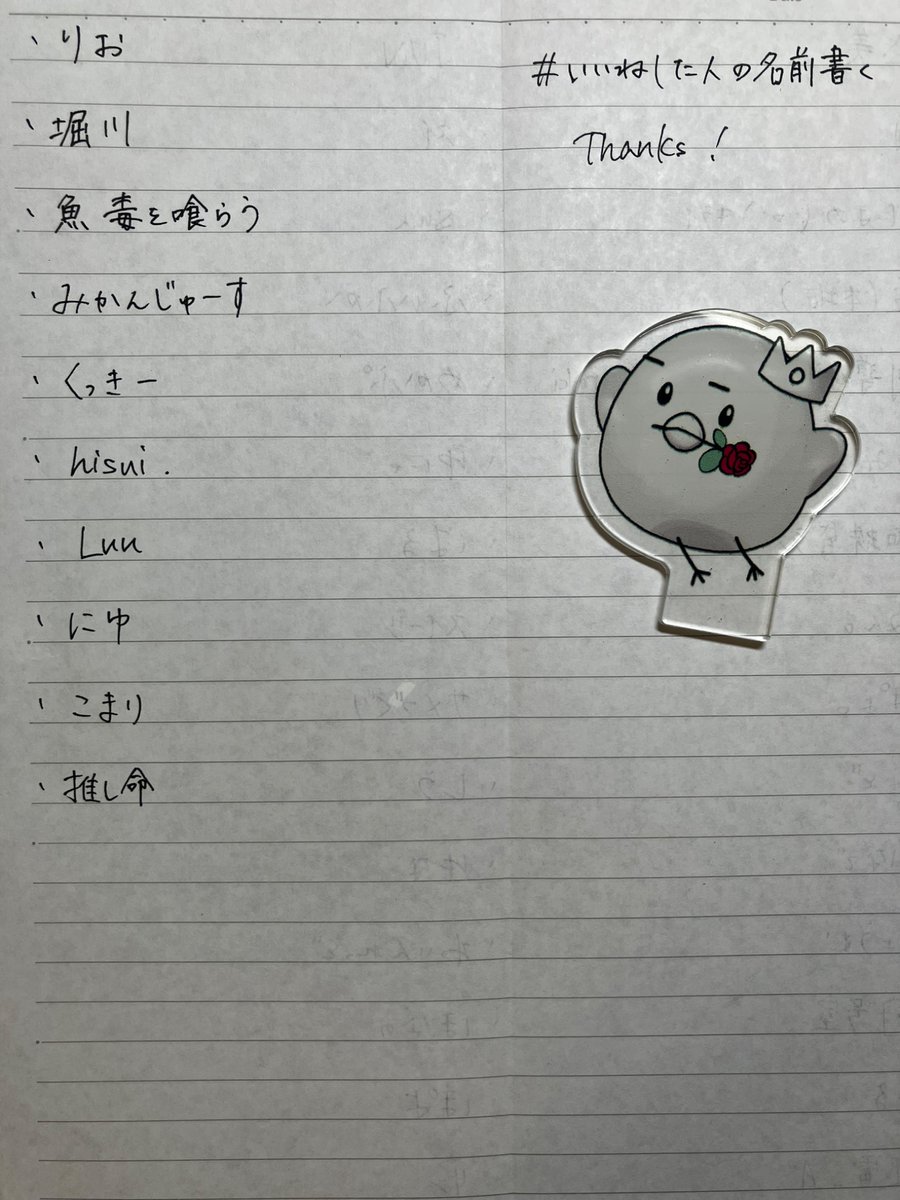 ・りお
・堀川
・魚 毒を喰らう
・みかんじゅーす
・くっきー
・hisui.
・Luu
・にゆ
・こまり
・推し命
#いいねした人の名前書く
Thanks!